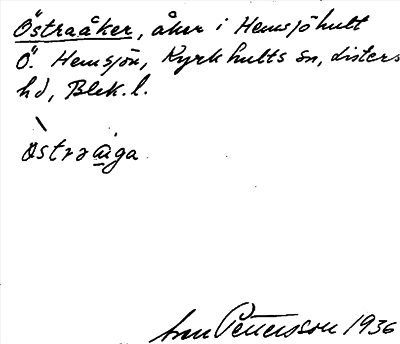 Östraåker, åker i Hemsjöhult
Ö. Hemsjön, Kyrkhults sn, Listers
hd, Blek. l.
Pettersson 1936